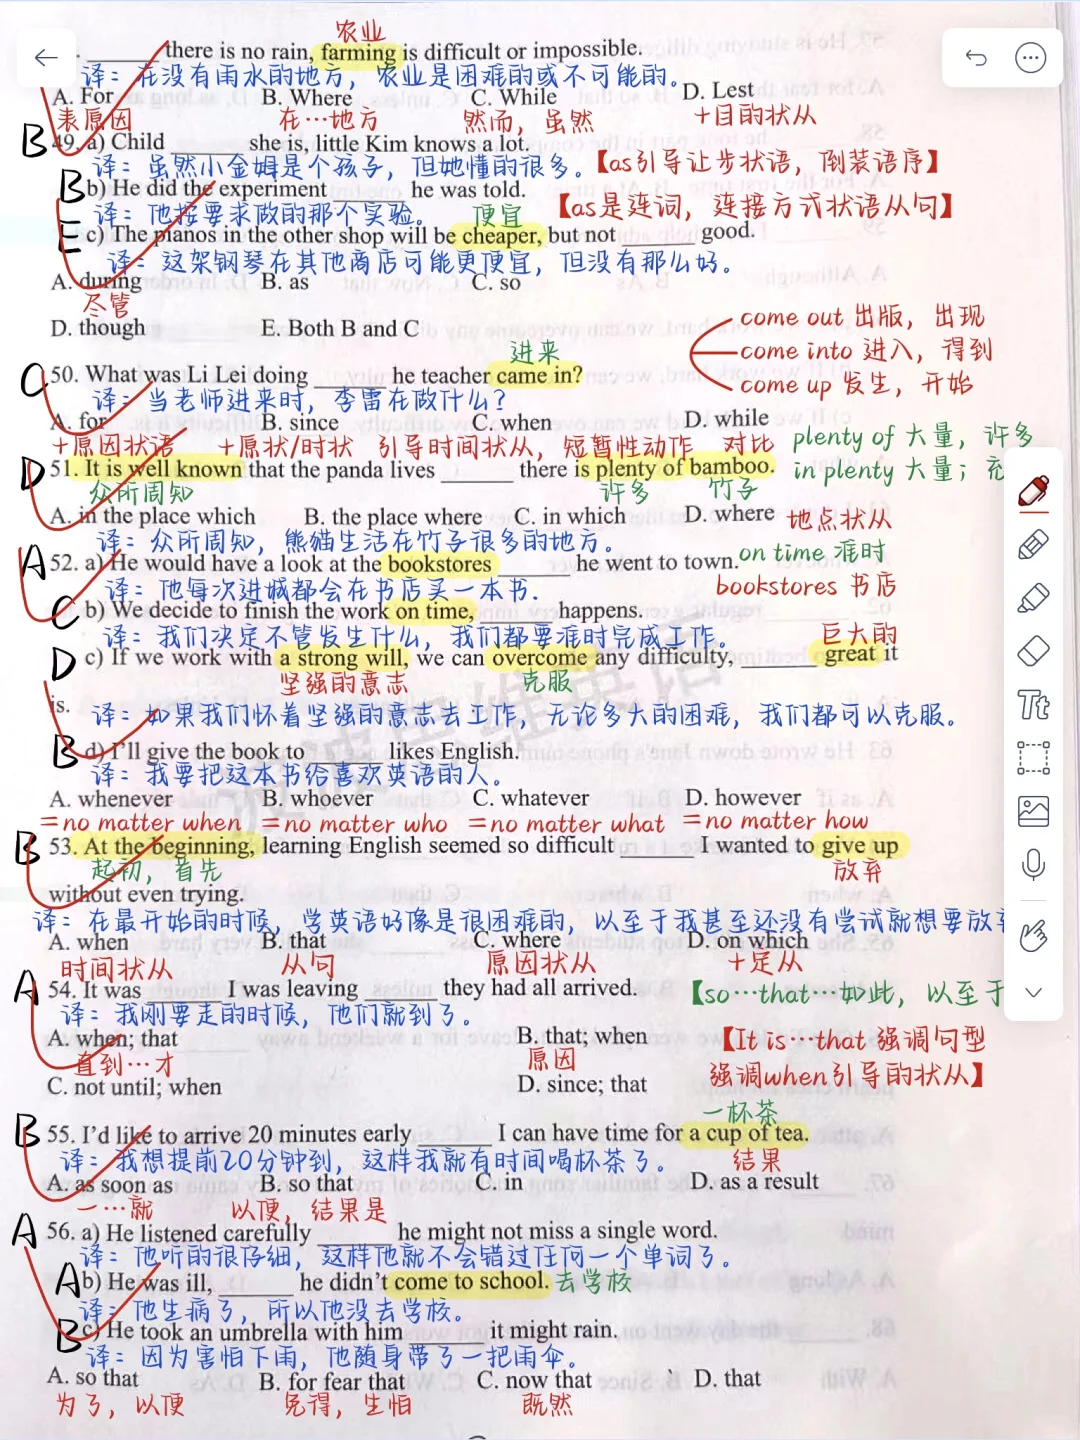 农业
. ______ there is no rain, farming is difficult or impossible.
译：在没有雨水的地方，农业是困难的或不可能的。
A. For B. Where C. While D. Lest
表原因 在…地方 然而，虽然 +目的状从
B 49. a) Child ______ she is, little Kim knows a lot.
译：虽然小金姆是个孩子，但她懂的很多。【as引导让步状语，倒装语序】
B b) He did the experiment ______ he was told.
译：他按要求做的那个实验。 便宜 【as是连词，连接方式状语从句】
E c) The pianos in the other shop will be cheaper, but not ______ good.
译：这架钢琴在其他商店可能更便宜，但没有那么好。
A. during B. as C. so
尽管
D. though E. Both B and C
come out 出版，出现
come into 进入，得到
come up 发生，开始
进来
C 50. What was Li Lei doing ______ he teacher came in?
译：当老师进来时，李雷在做什么？
A. for B. since C. when D. while
+原因状语 +原状/时状 引导时间状从，短暂性动作 对比
plenty of 大量，许多
in plenty 大量；充
D 51. It is well known that the panda lives ______ there is plenty of bamboo.
众所周知 许多 竹子
A. in the place which B. the place where C. in which D. where 地点状从
译：众所周知，熊猫生活在竹子很多的地方。
on time 准时
A 52. a) He would have a look at the bookstores ______ he went to town.
译：他每次进城都会在书店买一本书. bookstores 书店
C b) We decide to finish the work on time, ______ happens.
译：我们决定不管发生什么，我们都要准时完成工作。 巨大的
D c) If we work with a strong will, we can overcome any difficulty, ______ great it
坚强的意志 克服
is.
译：如果我们怀着坚强的意志去工作，无论多大的困难，我们都可以克服。
B d) I'll give the book to ______ likes English.
译：我要把这本书给喜欢英语的人。
A. whenever B. whoever C. whatever D. however
=no matter when =no matter who =no matter what =no matter how
B 53. At the beginning, learning English seemed so difficult ______ I wanted to give up
起初，首先 放弃
without even trying.
译：在最开始的时候，学英语好像是很困难的，以至于我甚至还没有尝试就想要放弃
A. when B. that C. where D. on which
时间状从 从句 原因状从 +定从
A 54. It was ______ I was leaving ______ they had all arrived. 【so…that…如此，以至于
译：我刚要走的时候，他们就到了。
A. when; that B. that; when
直到…才 原因
【It is…that 强调句型
强调when引导的状从】
C. not until; when D. since; that
一杯茶
B 55. I'd like to arrive 20 minutes early ______ I can have time for a cup of tea.
译：我想提前20分钟到，这样我就有时间喝杯茶了。 结果
A. as soon as B. so that C. in D. as a result
一…就 以便，结果是
A 56. a) He listened carefully ______ he might not miss a single word.
译：他听的很仔细，这样他就不会错过任何一个单词了。
A b) He was ill, ______ he didn't come to school. 去学校
译：他生病了，所以他没去学校。
B c) He took an umbrella with him ______ it might rain.
译：因为害怕下雨，他随身带了一把雨伞。
A. so that B. for fear that C. now that D. that
为了，以便 免得，生怕 既然
Tt